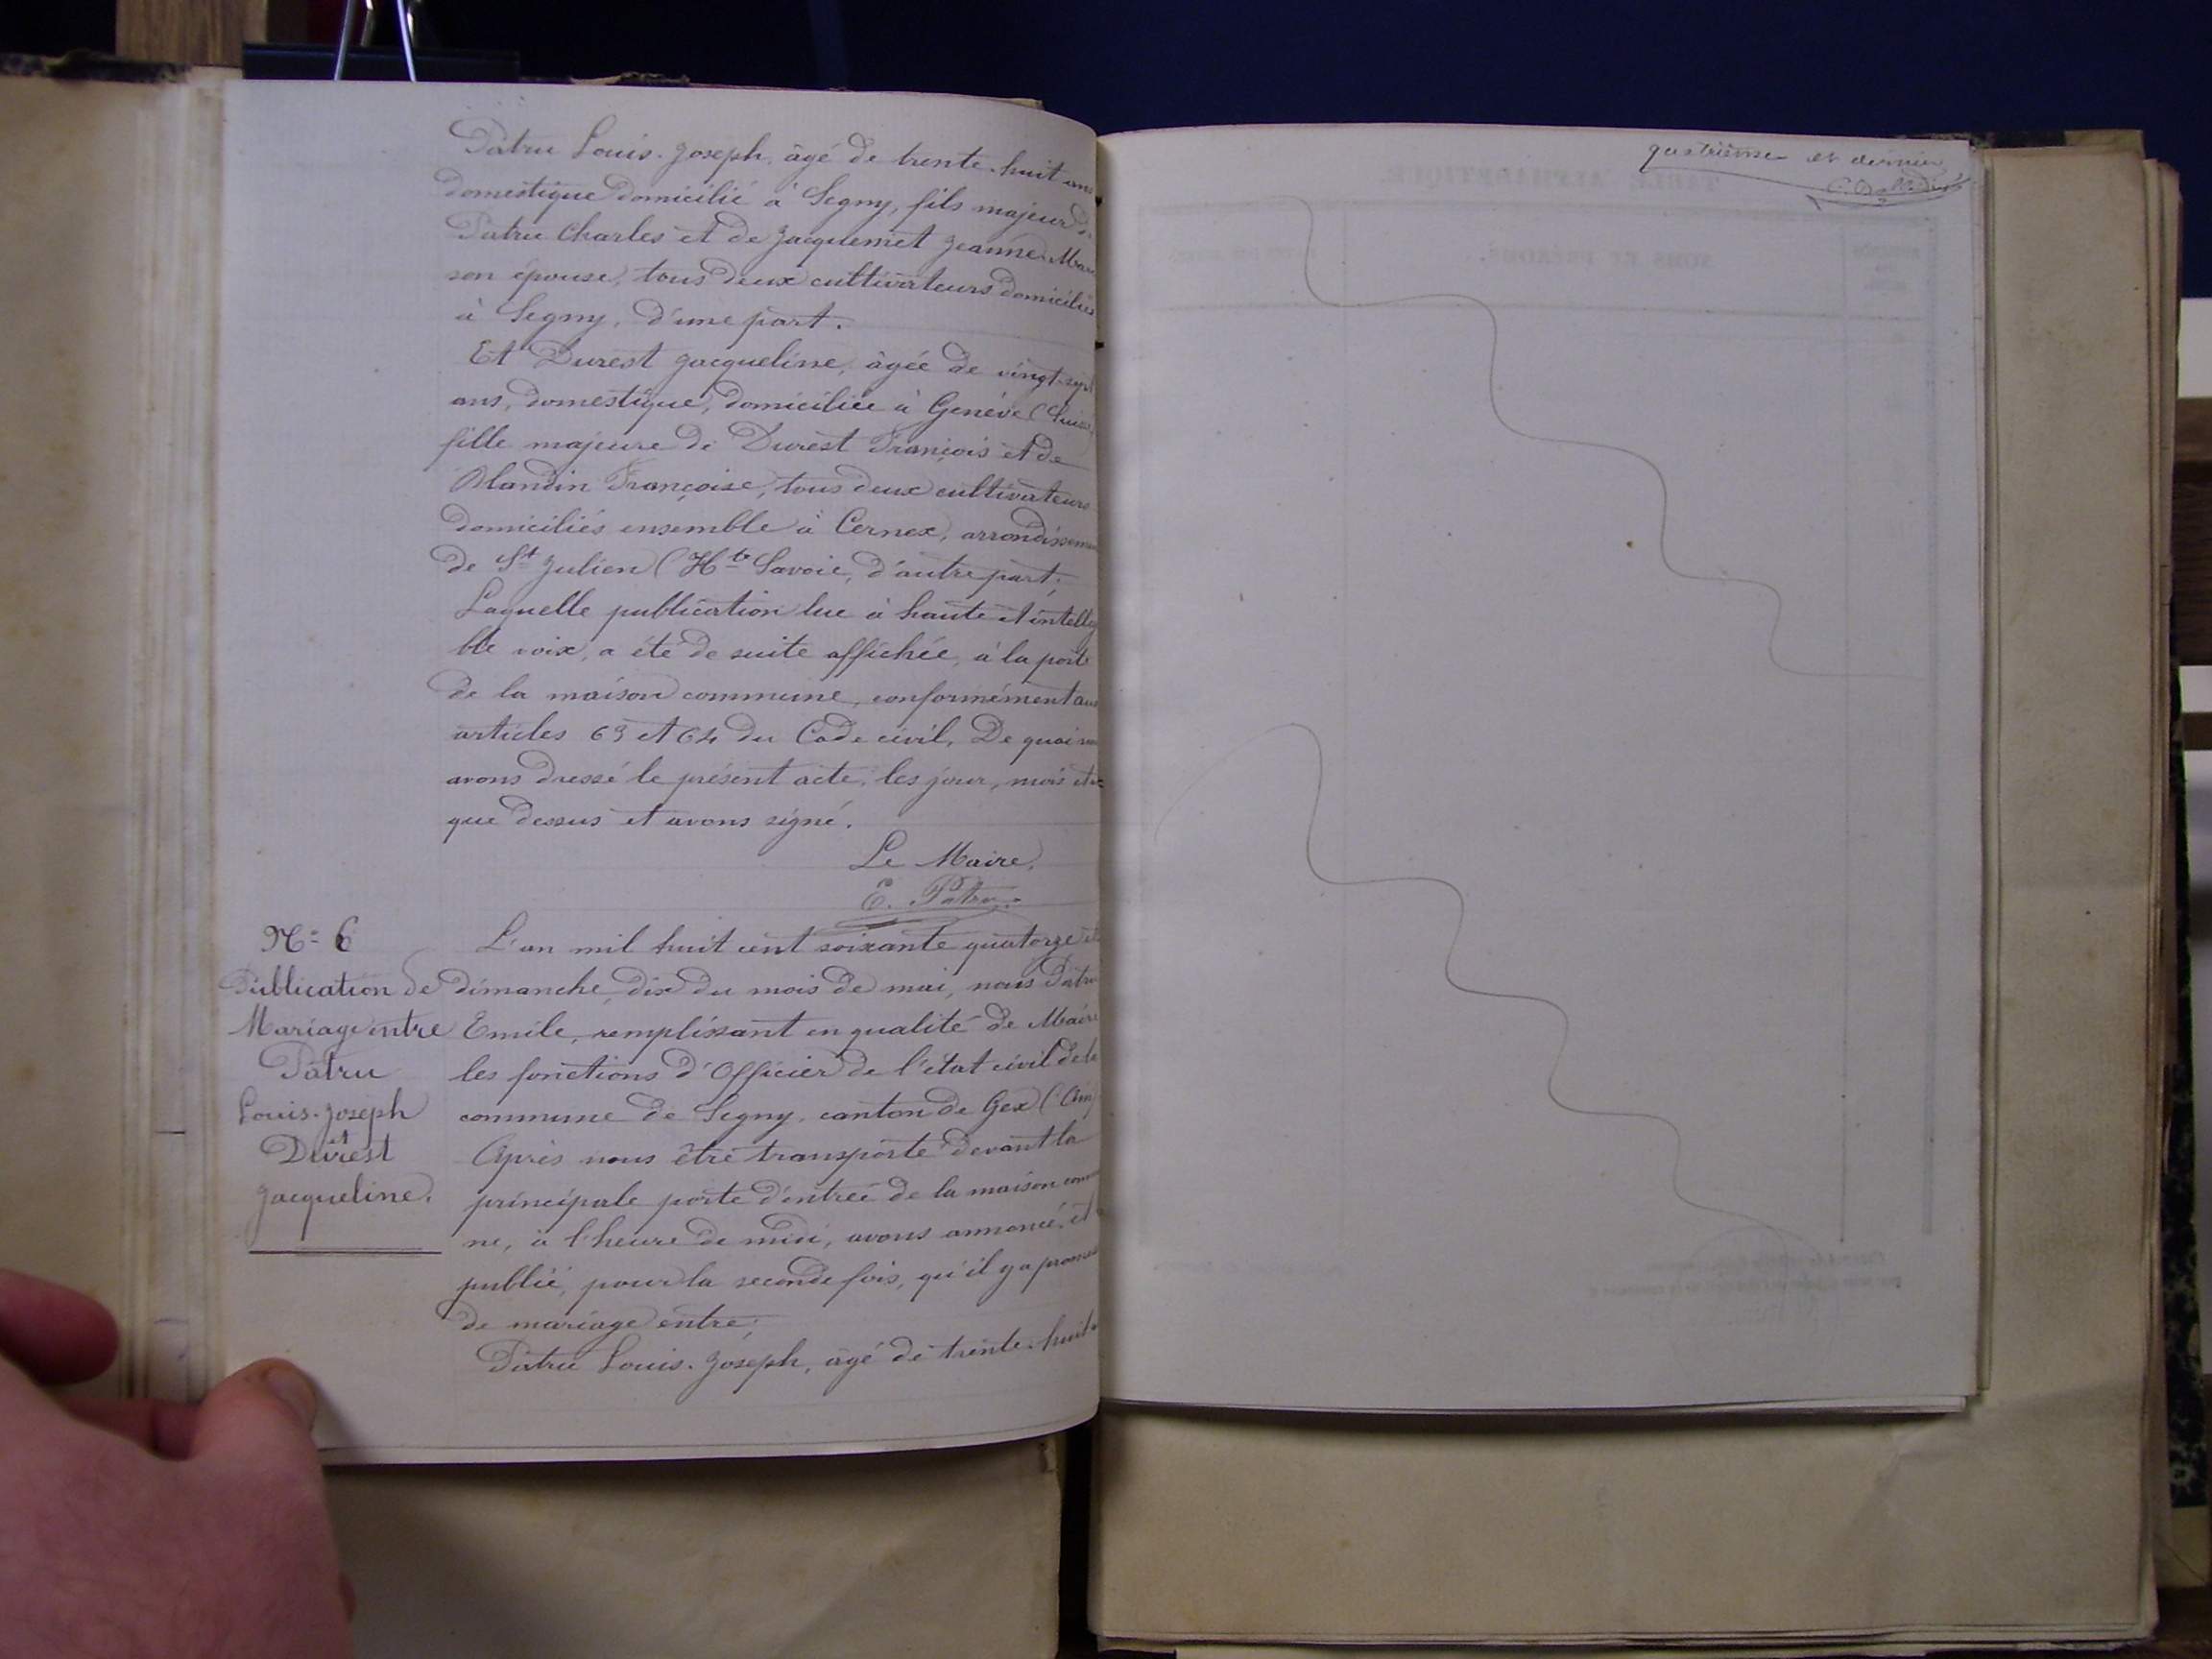 Patru Louis-Joseph, âgé de trente-huit ans
domestique domicilié à Segny, fils majeur de
Patru Charles et de Jacquemet Jeanne Mar
son épouse, tous deux cultivateurs domiciliés
à Segny, d'une part.
Et Durest Jacqueline, âgée de vingt-sept
ans, domestique, domiciliée à Genève (Suisse)
fille majeure de Durest François et de
Blandin Françoise, tous deux cultivateurs
domiciliés ensemble à Cernex, arrondissem
de St Julien (Hte Savoie, d'autre part;
Laquelle publication lue à haute et intelligi
ble voix, a été de suite affichée, à la porte
de la maison commune, conformément aux
articles 63 et 64 du Code civil, De quoi nous
avons dressé le présent acte, les jour, mois et an
que dessus et avons signé.
Le Maire,
E. Patru
No 6
Publication de
Mariage entre
Patru
Louis-Joseph
et
Durest
Jacqueline.
L'an mil huit cent soixante quatorze et
dimanche, dix du mois de mai, nous Patru
Emile, remplissant en qualité de Maire
les fonctions d'Officier de l'état civil de la
commune de Segny, canton de Gex (Ain)
Après nous être transporté devant la
principale porte d'entrée de la maison commu
ne, à l'heure de midi, avons annoncé et
publié, pour la seconde fois, qu'il y a promesse
de mariage entre;
Patru Louis-Joseph, âgé de trente-huit
quatrième et dernier